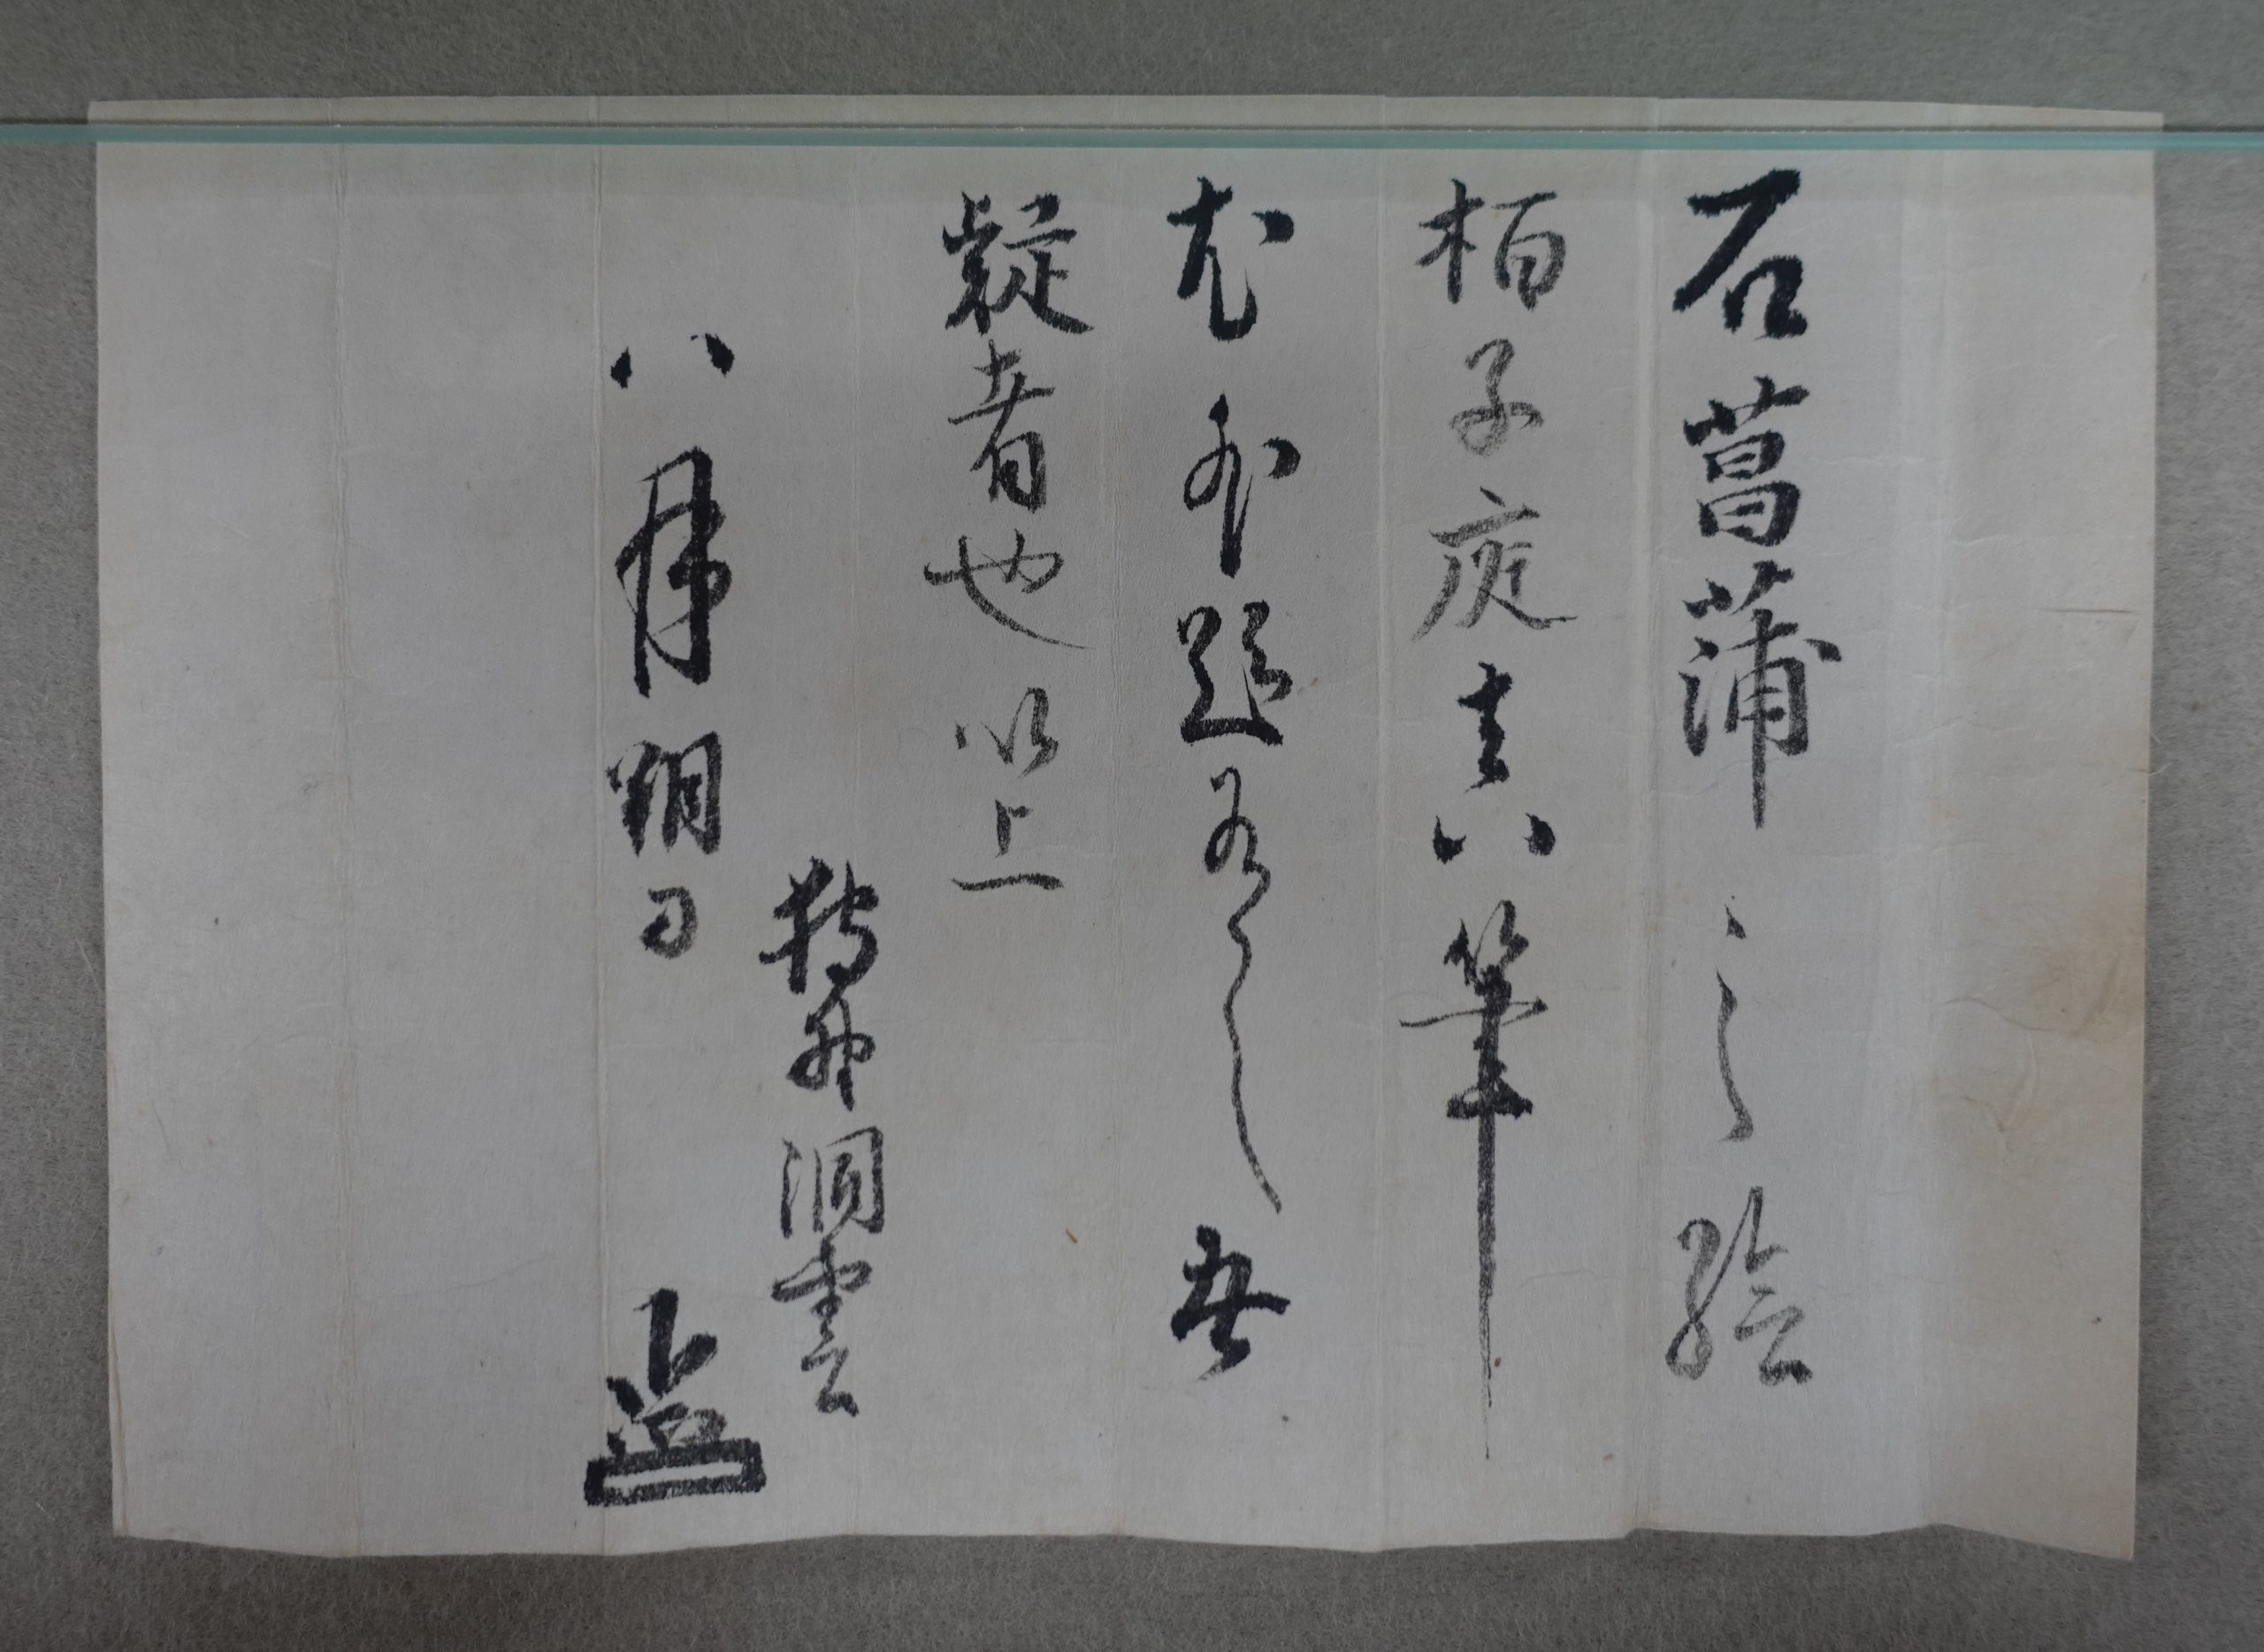 石菖蒲之絵
柏子庭真筆
尤外題有之無
疑者也以上
狩野洞雲
八月朔日